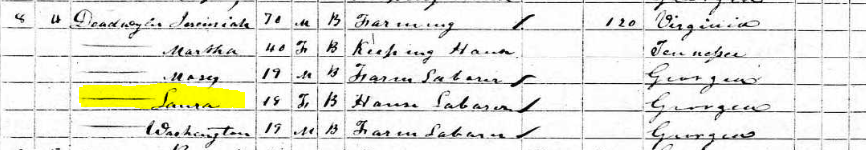 8 4 Deadwyler Jeremiah 70 M B Farming / 120 Virginia
—— Martha 40 F B Keeping House Tennessee
—— Mosey 19 M B Farm Laborer / Georgia
—— Laura 18 F B House Laborer / Georgia
Washington 19 M B Farm Laborer / Georgia